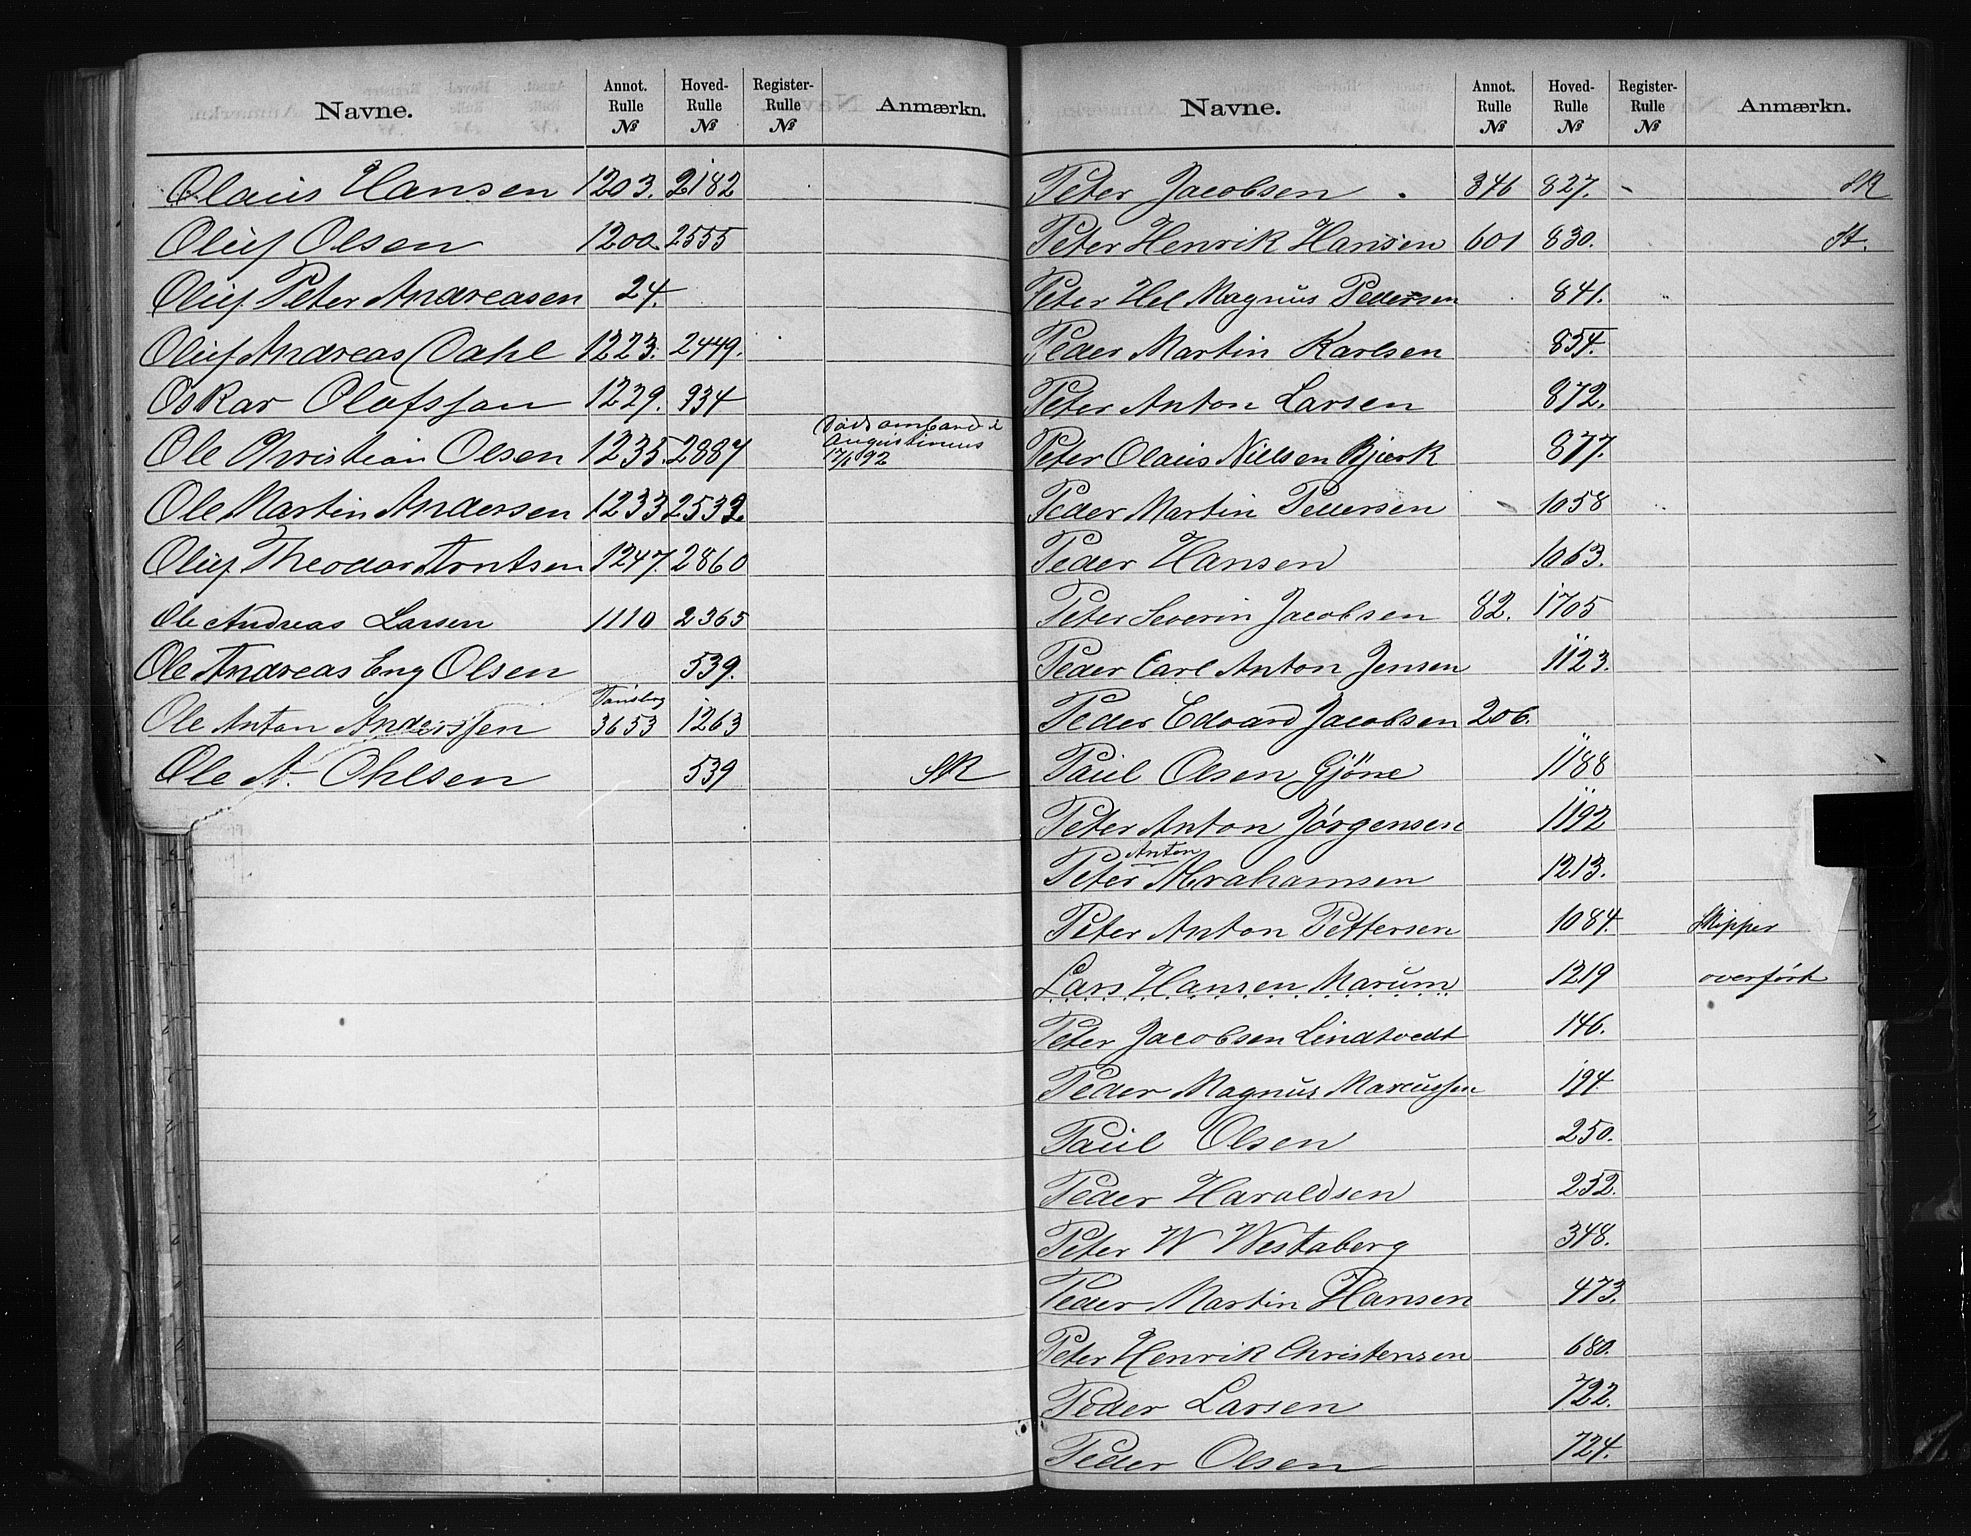 Navne. Annot. Rulle № Hoved-Rulle № Register-Rulle № Anmærkn.
Olaus Hansen 1203. 2182
Oluf Olsen 1200. 2555
Oluf Peter Andreasen 24.
Oluf Andreas Dahl 1223. 2449.
Oskar Olafsson 1229. 934
Ole Christian Olsen 1235. 2887 Død ombord i
Augustinus
92
Ole Martin Andersen 1233 2539.
Oluf Theodor Arntsen 1247. 2860
Ole Andreas Larsen 1110 2365
Ole Andreas Eng Olsen 539.
Tønsberg
Ole Anton Anderssen 3653 1263
Ole A. Ohlsen 539 SR
Navne. Annot. Rulle № Hoved-Rulle № Register-Rulle № Anmærkn.
Peter Jacobsen 346 827. SR
Peter Henrik Hansen 601 830. St.
Peter Hel Magnus Pedersen 841.
Peder Martin Karlsen 854.
Peter Anton Larsen 872.
Peter Olaus Nielsen Bjerk 877.
Peder Martin Pedersen 1058
Peder Hansen 1063.
Peter Severin Jacobsen 82. 1705
Peder Carl Anton Jensen 1123.
Peder Edvard Jacobsen 206.
Paul Olsen Gjöne 1188
Peter Anton Jörgensen 1192
Anton
Peter Abrahamsen 1213.
Peter Anton Pettersen 1084. Skipper
Lars Hansen Marum 1219 overfört
Peter Jacobsen Lindtvedt 146.
Peder Magnus Marcussen 194.
Paul Olsen 250.
Peder Haraldsen 252.
Peter W Westaberg 348.
Peder Martin Hansen 473.
Peter Henrik Christensen 680.
Peder Larsen 722.
Peder Olsen 724.